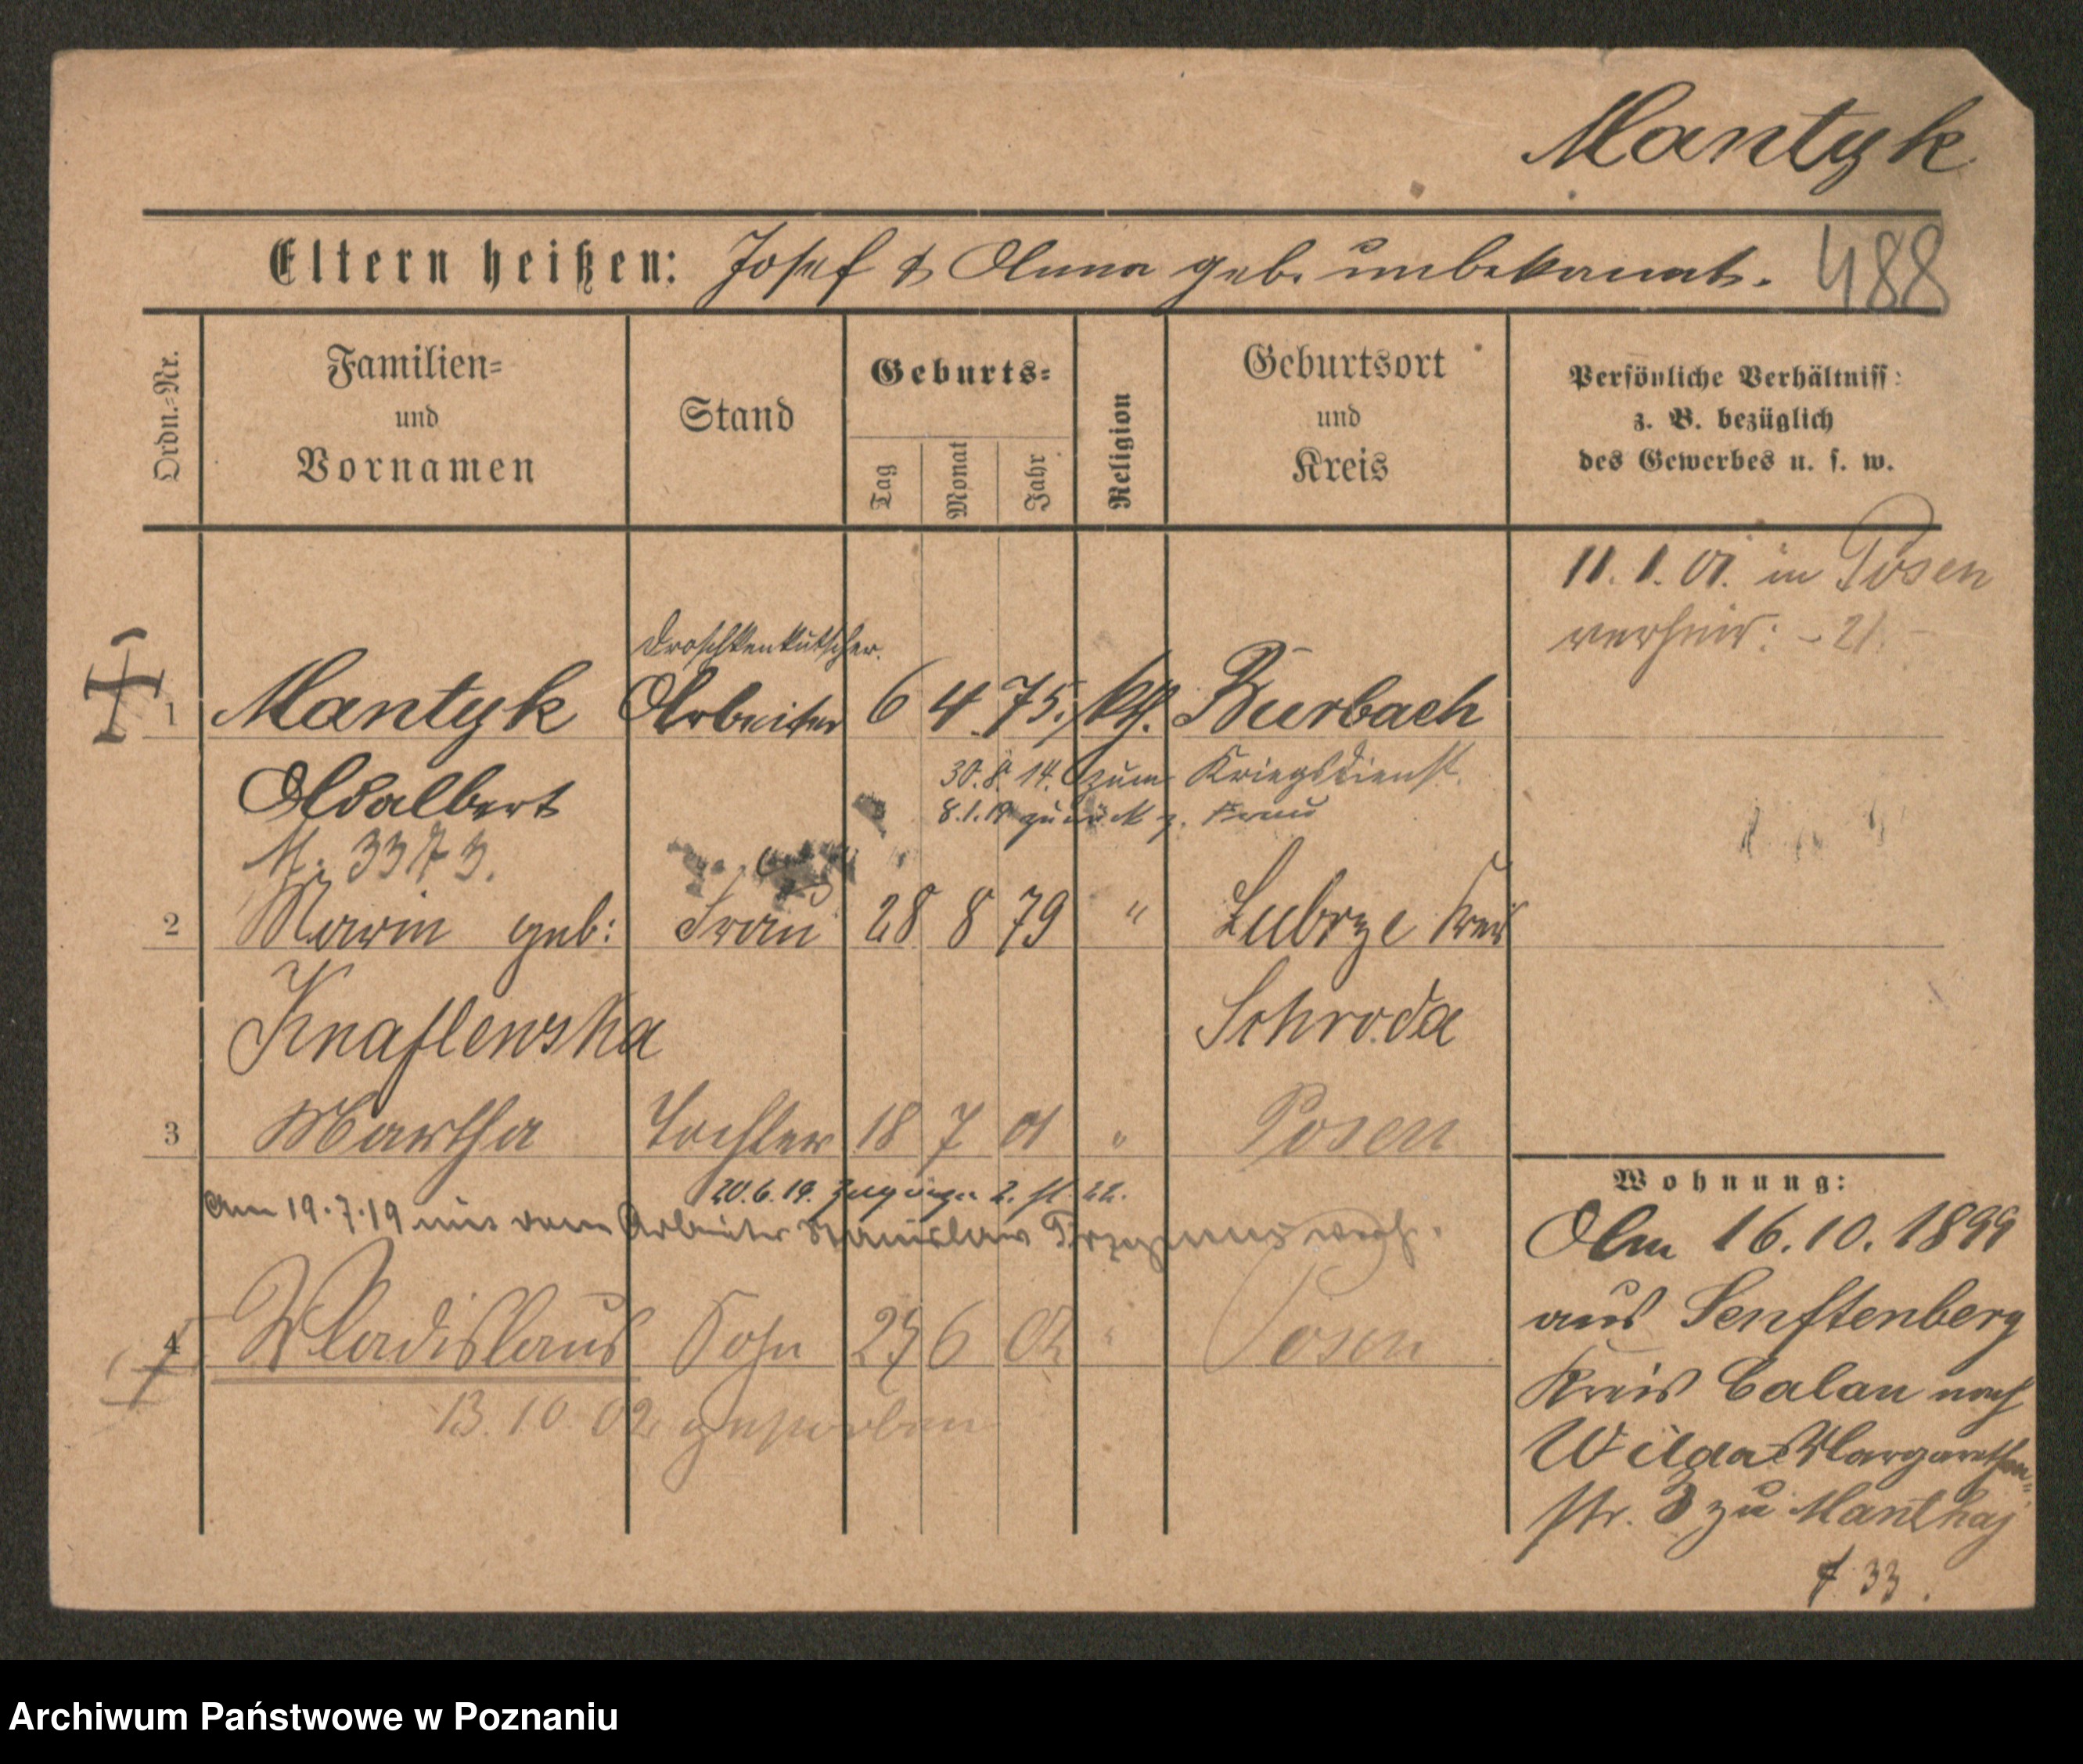 Mantyk
Eltern heißen: Josef & Anna geb. unbekannt. 488
Ordn.=Nr. Familien= und Vornamen Stand Geburts= Tag Monat Jahr Religion Geburtsort und Kreis Persönliche Verhältniss: z. B. bezüglich des Gewerbes u. s. w.
11. 1. 01. in Posen
verheir:
Droschkenkutscher.
1 Mantyk Arbeiter 6 4 75. kth. Burbach
Adalbert 30.8.14. zum Kriegsdienst
8.1.19 zurück z. Frau
2 Marin geb: Frau 28 8 79 " Lubrze Kreis
Knaflewska Schroda
3 Martha Tochter 18 7 01 " Posen
20.6.19.
Am 19.7.19 mit dem Arbeiter Stanislaw
4 Wladislaus Sohn 6 02 " Posen
13.10.02 gestorben
Wohnung:
Am 16.10.1899
aus Senftenberg
Kreis Calau nach
Wilda Margarethen=
str. 3 zu Manthaj
33.
Archiwum Państwowe w Poznaniu